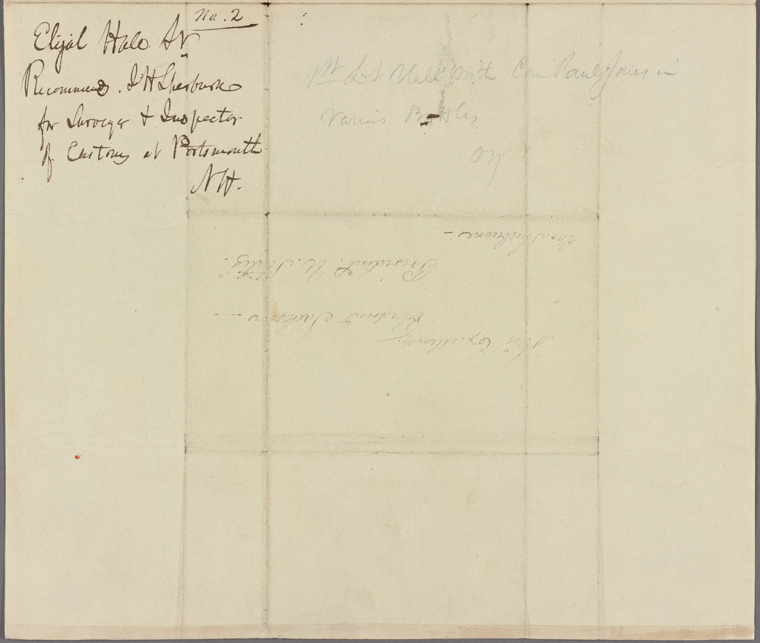 No. 2
Elijah Hale Sr
Recommends J H Sherburne
for Surveyor & Inspector
of Customs at Portsmouth
NH.
1st Lt Hall with Com Paul Jones in
Various Battles
His Excellency
Andrew Jackson
President U. States.